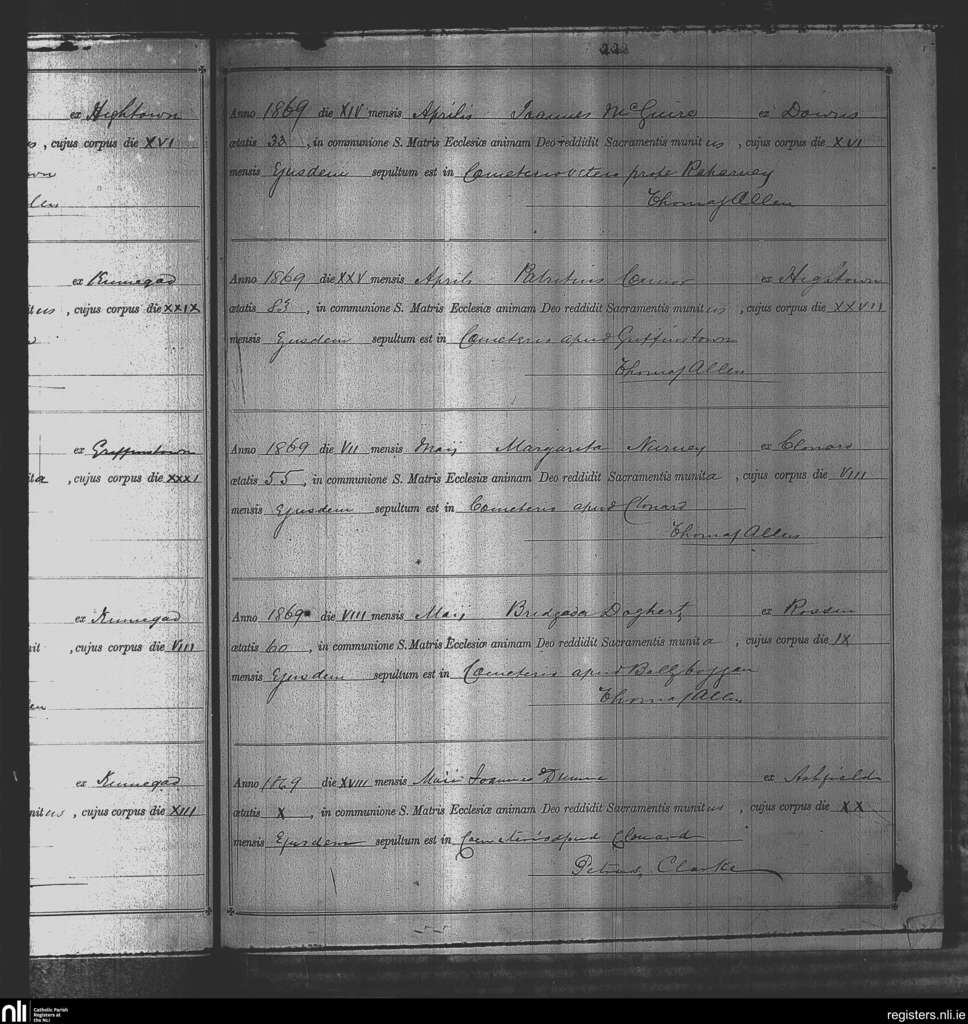 ex Hightown
, cujus corpus die XVI
ex Kinnegad
itus , cujus corpus die XXIX
ex Griffinstown
ita , cujus corpus die XXXI
ex Kinnegad
nit , cujus corpus die VIII
ex Kinnegad
nitus , cujus corpus die XIII
222
Anno 1869 die XIV mensis Aprilis Joannes McGuire ex Downs
ætatis 33 , in communione S. Matris Ecclesiæ animam Deo reddidit Sacramentis munitus , cujus corpus die XVI
mensis Ejusdem sepultum est in Cometerio vetere prope Raharney
Thomas Allen
Anno 1869 die XXV mensis Aprils Patritius Connor ex Hightown
ætatis 83 , in communione S. Matris Ecclesiæ animam Deo reddidit Sacramentis munitus , cujus corpus die XXVII
mensis Ejusdem sepultum est in Cometeris apud Griffinstown
Thomas Allen
Anno 1869 die VII mensis Maij Margarita Nerney ex Clonard
ætatis 55 , in communione S. Matris Ecclesiæ animam Deo reddidit Sacramentis munita , cujus corpus die VIII
mensis Ejusdem sepultum est in Cometeris apud Clonard
Thomas Allen
Anno 1869 die VIII mensis Maij Bridgada Doghert ex Rossan
ætatis 60 , in communione S. Matris Ecclesiæ animam Deo reddidit Sacramentis munita , cujus corpus die IX
mensis Ejusdem sepultum est in Cometeris apud Ballyboggan
Thomas Allen
Anno 1869 die XVIII mensis Maii Joannes Dunne ex Ashfield
ætatis X , in communione S. Matris Ecclesiæ animam Deo reddidit Sacramentis munitus , cujus corpus die XX
mensis Ejusdem sepultum est in Coemeteris apud Clonard
Petrus Clarke
nli Catholic Parish
Registers at
the NLI
registers.nli.ie